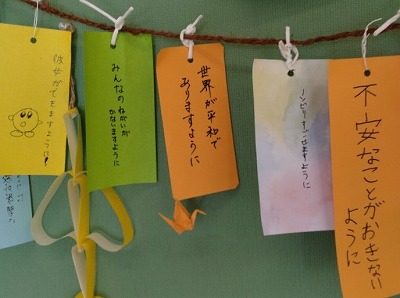 彼女ができますように!
みんなのねがいが
かないますように
世界が平和で
ありますように
ノンビリすごせますように
不安なことがおきない
ように